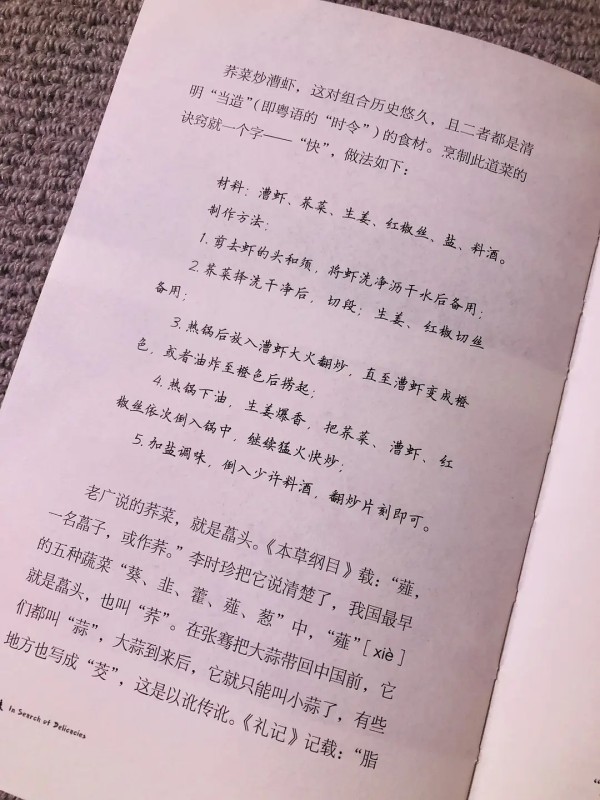 荞菜炒漕虾，这对组合历史悠久，且二者都是清
明“当造”（即粤语的“时令”）的食材。烹制此道菜的
诀窍就一个字——“快”，做法如下：
材料：漕虾、荞菜、生姜、红椒丝、盐、料酒。
制作方法：
1. 剪去虾的头和须，将虾洗净沥干水后备用；
2. 荞菜择洗干净后，切段；生姜、红椒切丝
备用；
3. 热锅后放入漕虾大火翻炒，直至漕虾变成橙
色，或者油炸至橙色后捞起；
4. 热锅下油，生姜爆香，把荞菜、漕虾、红
椒丝依次倒入锅中，继续猛火快炒；
5. 加盐调味，倒入少许料酒，翻炒片刻即可。
老广说的荞菜，就是藠头。《本草纲目》载：“薤，
一名藠子，或作荞。”李时珍把它说清楚了，我国最早
的五种蔬菜“葵、韭、藿、薤、葱”中，“薤”[xiè]
就是藠头，也叫“荞”。在张骞把大蒜带回中国前，它
们都叫“蒜”，大蒜到来后，它就只能叫小蒜了，有些
地方也写成“茭”，这是以讹传讹。《礼记》记载：“脂
In Search of Delicacies